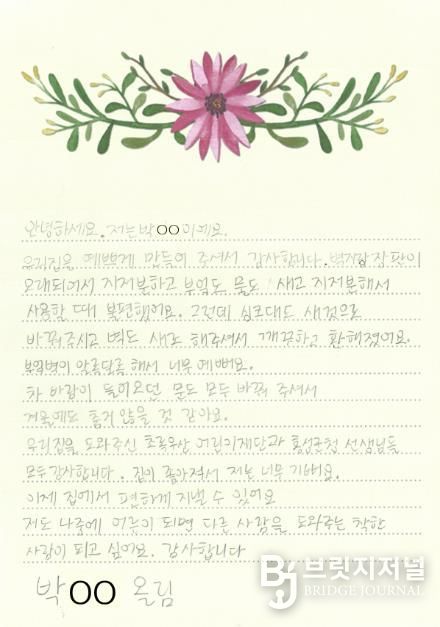 안녕하세요. 저는 박OO이에요.
우리집을 예쁘게 만들어 주셔서 감사합니다. 벽지랑 장판이
오래되어서 지저분하고 부엌도 물도 새고 지저분해서
사용할 때 불편했어요. 그런데 싱크대도 새것으로
바꿔주시고 벽도 새로 해주셔서 깨끗하고 환해졌어요.
부엌벽이 알록달록 해서 너무 예뻐요.
차 바람이 들어오던 문도 모두 바꿔 주셔서
겨울에도 춥지 않을 것 같아요.
우리집을 도와주신 초록우산 어린이재단과 홍성군청 선생님들
모두 감사합니다. 집이 좋아져서 저는 너무 기뻐요.
이제 집에서 편하게 지낼 수 있어요
저도 나중에 어른이 되면 다른 사람을 도와주는 착한
사람이 되고 싶어요. 감사합니다
박OO 올림
BJ 브릿지저널
BRIDGE JOURNAL